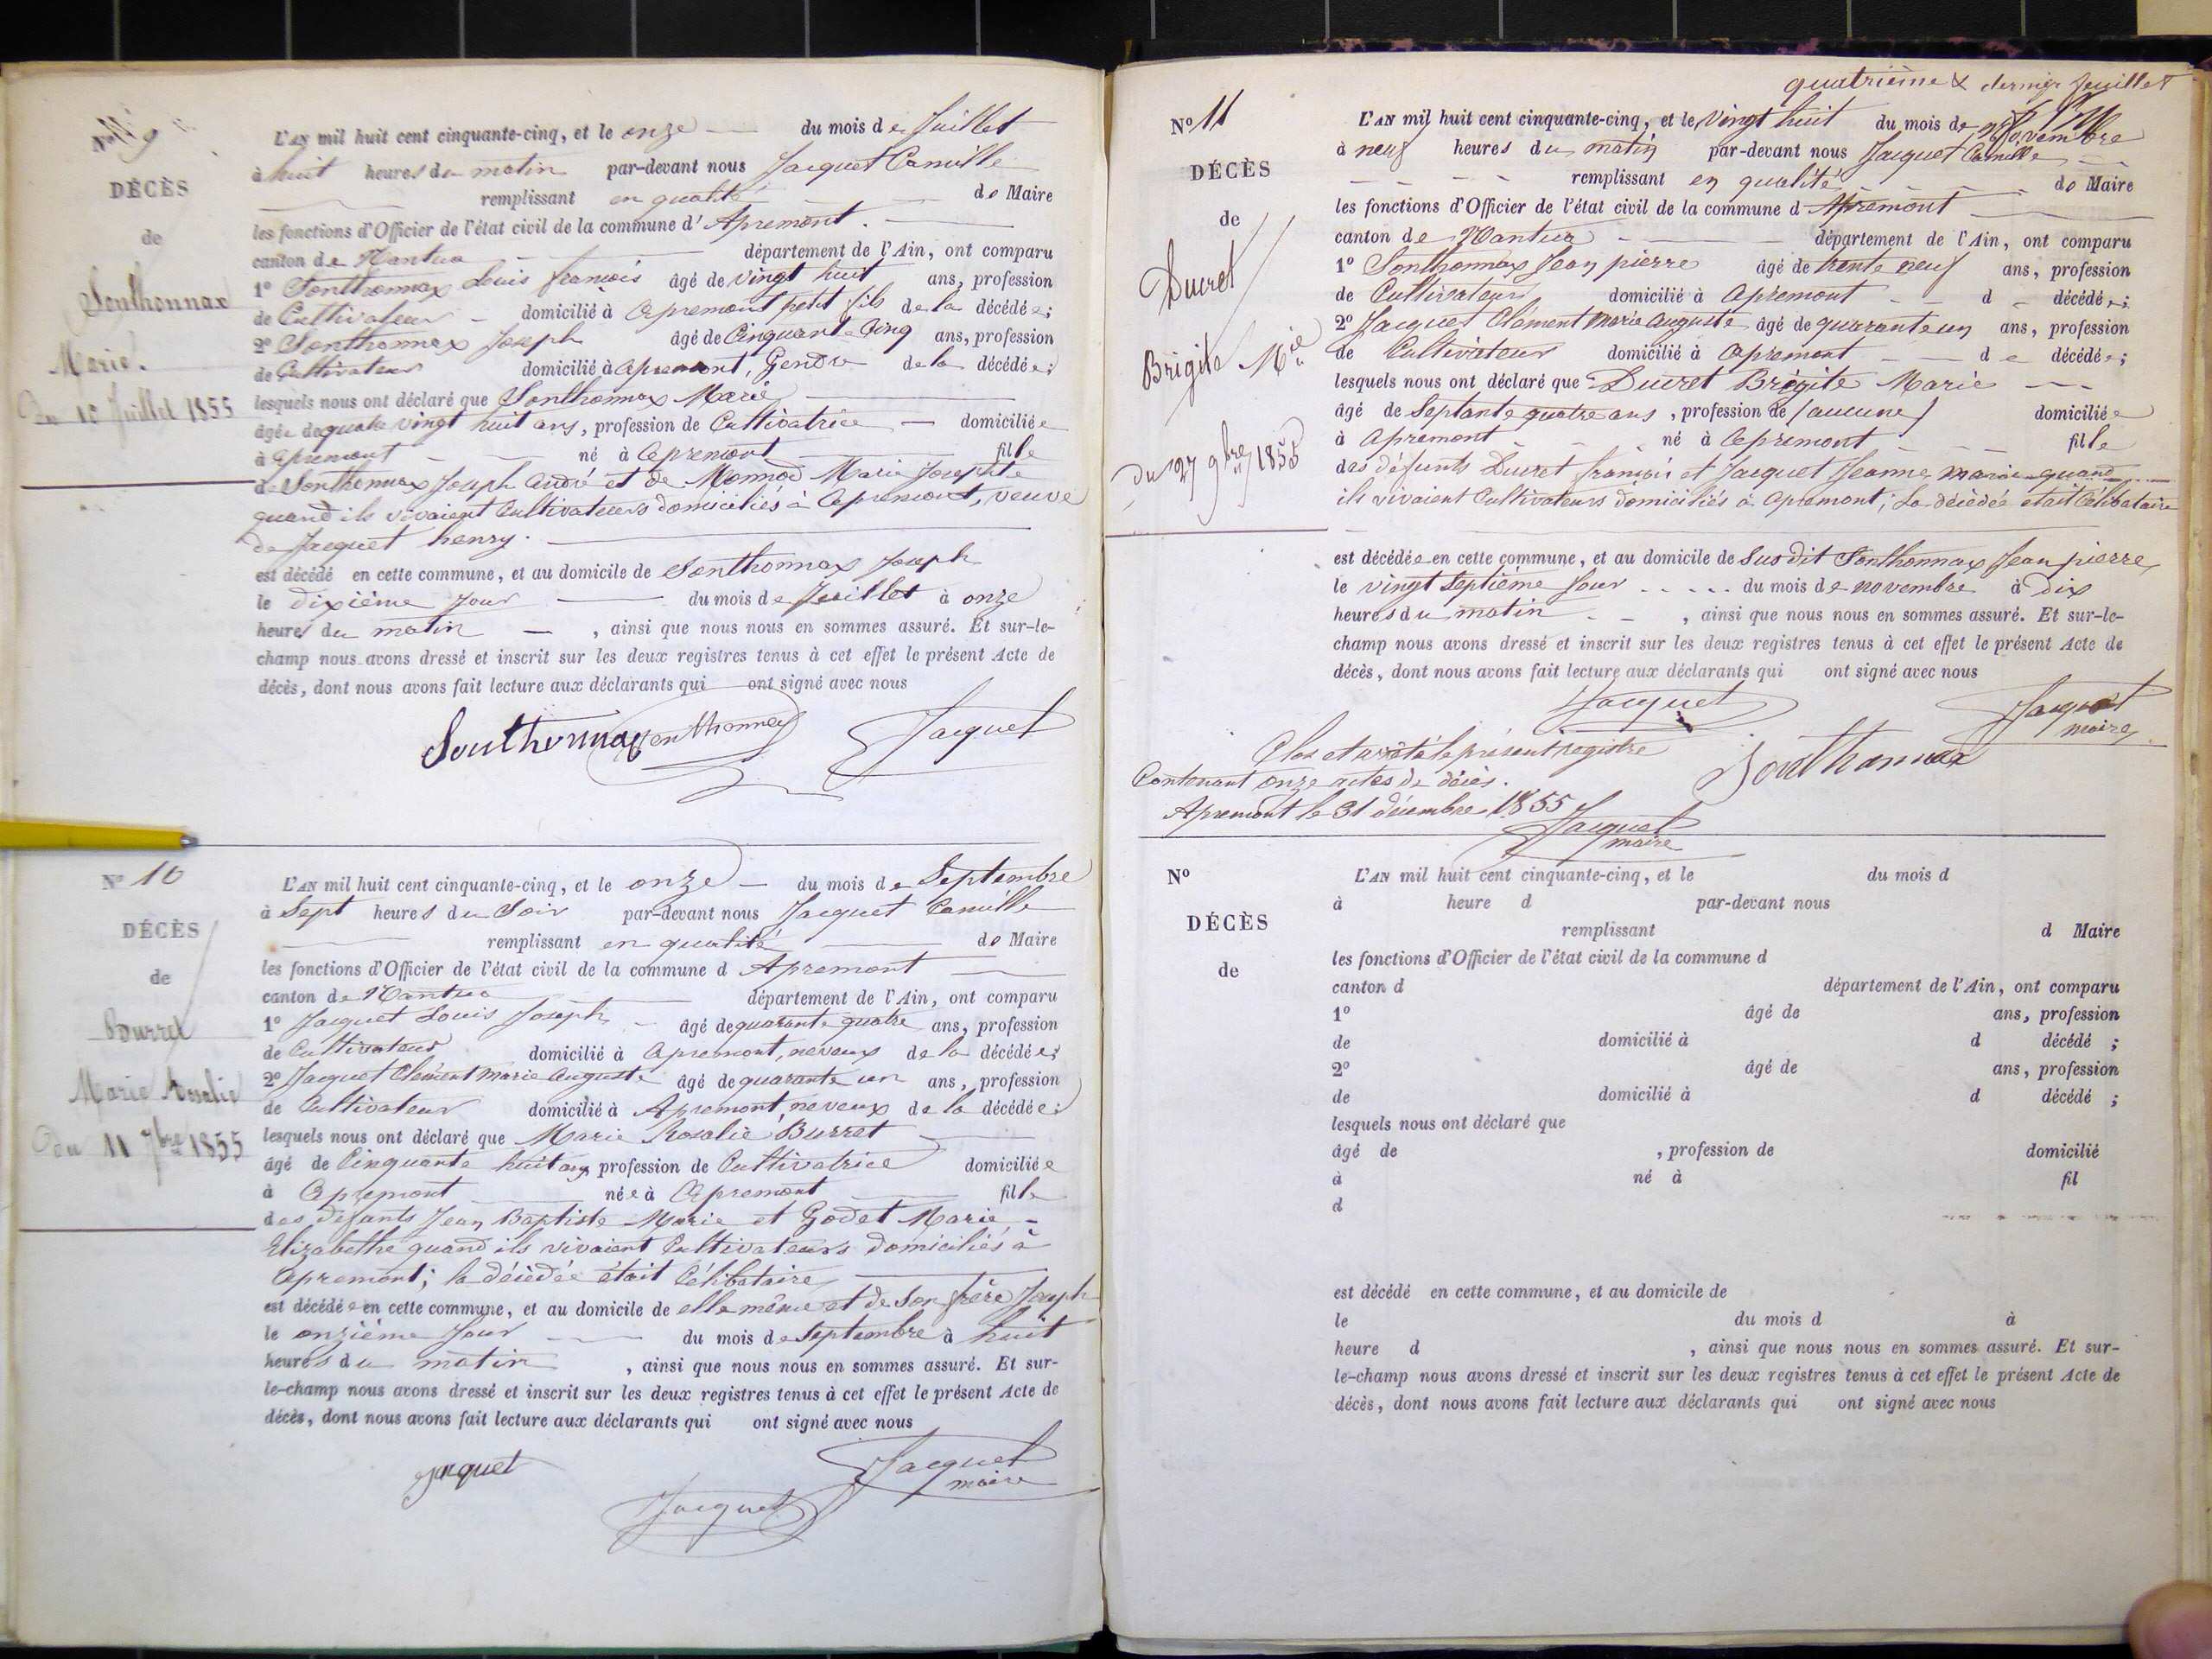 No 9
DÉCÈS
de
Sonthonnax
Marie.
Du 10 Juillet 1855
L'AN mil huit cent cinquante-cinq, et le onze du mois de Juillet
à huit heures du matin par-devant nous Jacquet Camille
remplissant en qualité de Maire
les fonctions d'Officier de l'état civil de la commune d'Apremont.
canton de Nantua département de l'Ain, ont comparu
1o Sonthonnax Louis françois âgé de vingt huit ans, profession
de Cultivateur domicilié à Apremont petit fils de la décédée;
2o Sonthonnax Joseph âgé de Cinquante Cinq ans, profession
de Cultivateur domicilié à apremont, Gendre de la décédée;
lesquels nous ont déclaré que Sonthonnax Marie
âgée de quatre vingt huit ans, profession de Cultivatrice domiciliée
à apremont né à Apremont fille
de Sonthonnax Joseph André et de Monnod Marie Josephte
quand ils vivaient Cultivateurs domiciliés à Apremont, veuve
de Jacquet henry.
est décédé en cette commune, et au domicile de Sonthonnax Joseph
le dixième jour du mois de Juillet à onze
heures du matin , ainsi que nous nous en sommes assuré. Et sur-le-
champ nous avons dressé et inscrit sur les deux registres tenus à cet effet le présent Acte de
décès, dont nous avons fait lecture aux déclarants qui ont signé avec nous
Sonthonnax Sonthonnax Jacquet
No 10
DÉCÈS
de
Bourret
Marie Rosalie
du 11 7bre 1855
L'AN mil huit cent cinquante-cinq, et le onze du mois de Septembre
à Sept heures du Soir par-devant nous Jacquet Camille
remplissant en qualité de Maire
les fonctions d'Officier de l'état civil de la commune d Apremont
canton de Nantua département de l'Ain, ont comparu
1o Jacquet Louis Joseph âgé de quarante quatre ans, profession
de Cultivateur domicilié à Apremont, neveux de la décédée;
2o Jacquet Clément Marie Auguste âgé de quarante un ans, profession
de Cultivateur domicilié à Apremont, neveux de la décédée;
lesquels nous ont déclaré que Marie Rosalie Burret
âgé de Cinquante huit ans profession de Cultivatrice domiciliée
à Apremont née à Apremont fille
des défunts Jean Baptiste Marie et Godet Marie
Elizabethe quand ils vivaient Cultivateurs domiciliés à
Apremont; la décédée était Célibataire
est décédée en cette commune, et au domicile de elle même et de son frère Joseph
le onzième jour du mois de Septembre à huit
heures du matin , ainsi que nous nous en sommes assuré. Et sur-
le-champ nous avons dressé et inscrit sur les deux registres tenus à cet effet le présent Acte de
décès, dont nous avons fait lecture aux déclarants qui ont signé avec nous
jacquet Jacquet
maire
Jacquet
quatrième & dernier feuillet
No 11
DÉCÈS
de
Ducret
Brigite Mie
du 27 9bre 1855
L'AN mil huit cent cinquante-cinq, et le Vingt huit du mois de novembre
à neuf heures du matin par-devant nous Jacquet Camille
remplissant en qualité de Maire
les fonctions d'Officier de l'état civil de la commune d Apremont
canton de Nantua département de l'Ain, ont comparu
1o Sonthonnax Jean pierre âgé de trente neuf ans, profession
de Cultivateur domicilié à Apremont d décédée;
2o Jacquet Clément Marie Auguste âgé de quarante un ans, profession
de Cultivateur domicilié à apremont de décédée;
lesquels nous ont déclaré que Ducret Brigite Marie
âgé de Septante quatre ans, profession de (aucune) domiciliée
à Apremont né à Apremont fille
des défunts Ducret françois et Jacquet Jeanne Marie quand
ils vivaient Cultivateurs domiciliés à Apremont; la décédée était Célibataire
est décédée en cette commune, et au domicile de Susdit Sonthonnax Jean pierre
le vingt Septième Jour du mois de novembre à dix
heures du matin , ainsi que nous nous en sommes assuré. Et sur-le-
champ nous avons dressé et inscrit sur les deux registres tenus à cet effet le présent Acte de
décès, dont nous avons fait lecture aux déclarants qui ont signé avec nous
Jacquet Jacquet
maire
Clos et arrêté le présent registre Sonthonnax
Contenant onze actes de décès.
Apremont le 31 décembre 1855
Jacquet
maire
No
DÉCÈS
de
L'AN mil huit cent cinquante-cinq, et le du mois d
à heure d par-devant nous
remplissant d Maire
les fonctions d'Officier de l'état civil de la commune d
canton d département de l'Ain, ont comparu
1o âgé de ans, profession
de domicilié à d décédé ;
2o âgé de ans, profession
de domicilié à d décédé ;
lesquels nous ont déclaré que
âgé de , profession de domicilié
à né à fil
d
est décédé en cette commune, et au domicile de
le du mois d à
heure d , ainsi que nous nous en sommes assuré. Et sur-
le-champ nous avons dressé et inscrit sur les deux registres tenus à cet effet le présent Acte de
décès, dont nous avons fait lecture aux déclarants qui ont signé avec nous